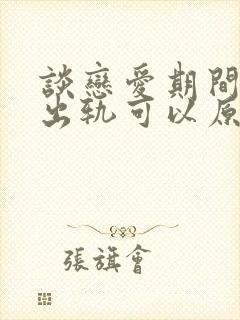 談戀愛期間
出軌可以原
張旗會